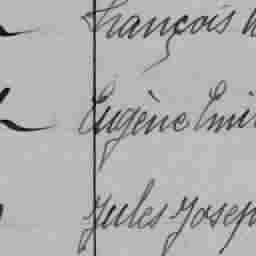 François
Eugène Emi
Jules Josep